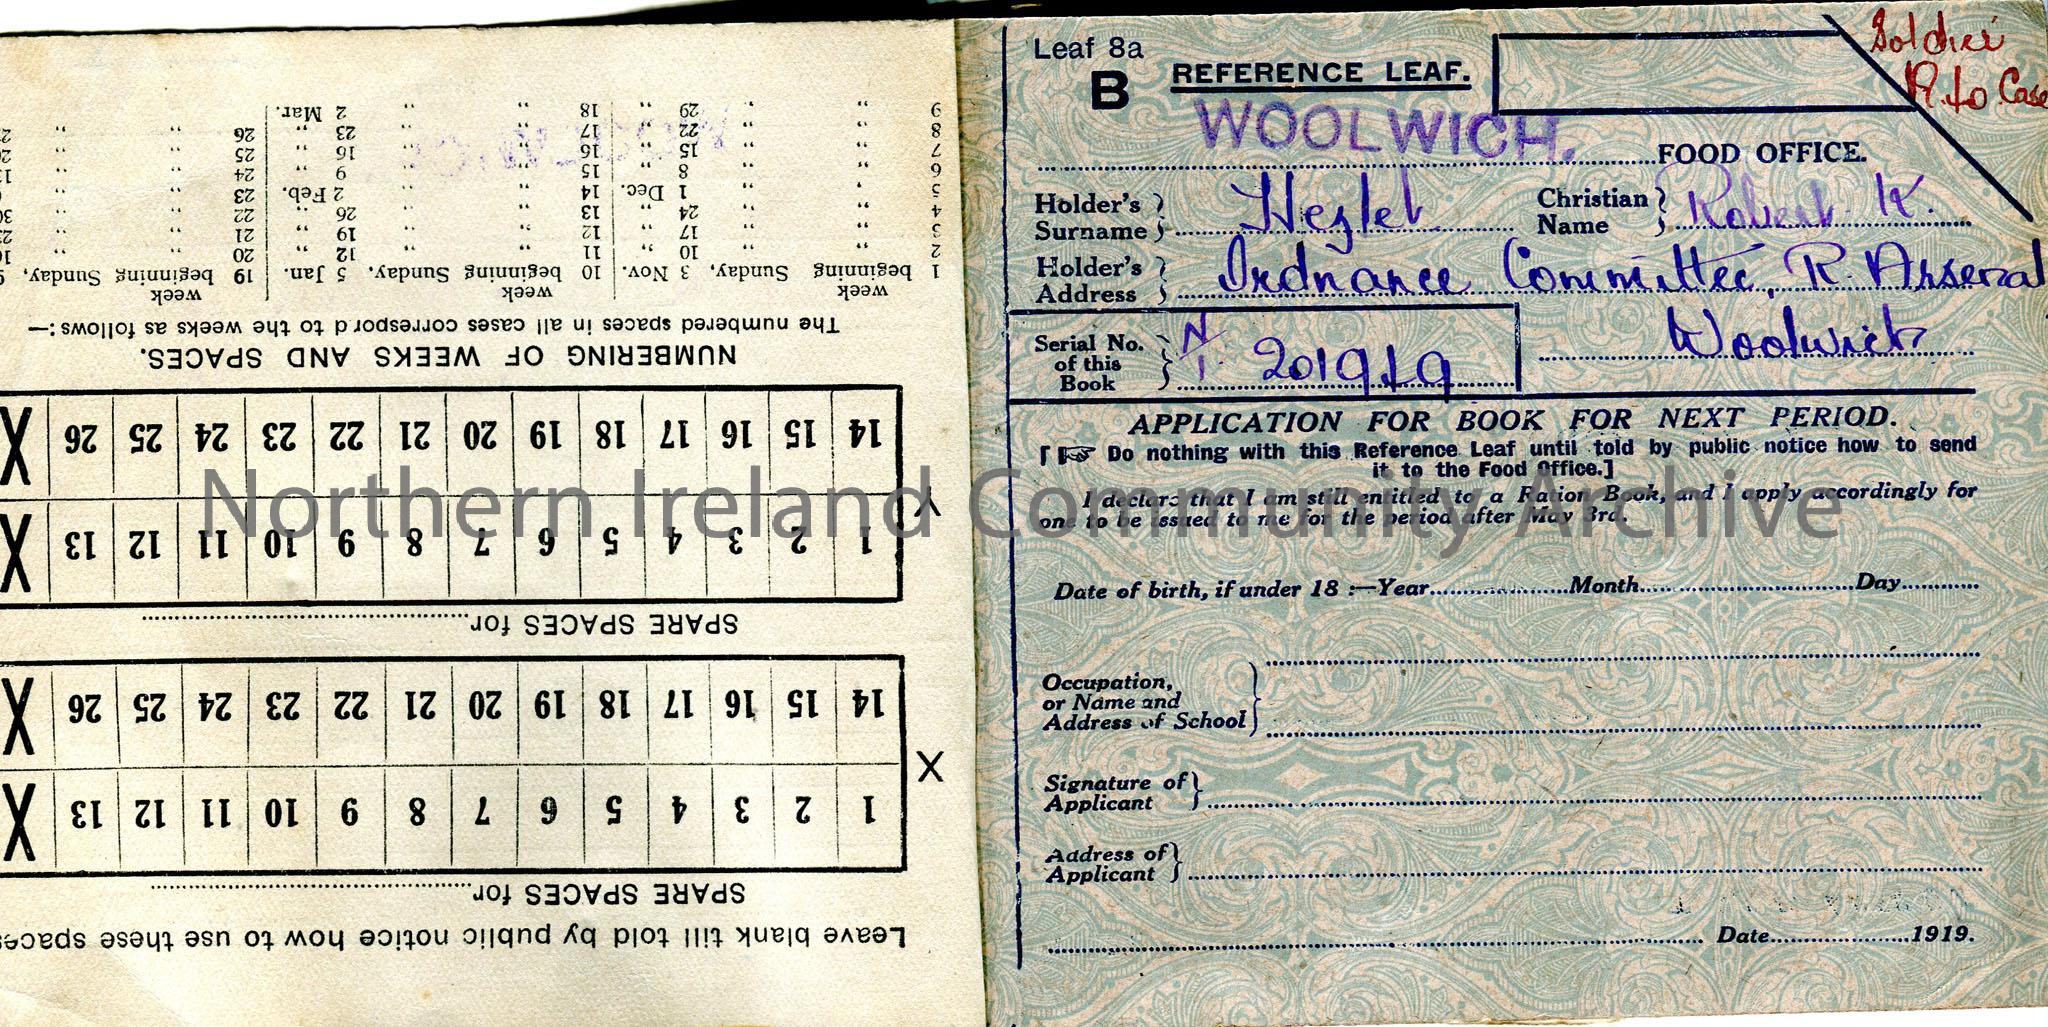 Leaf 8a
B
REFERENCE LEAF.
Soldier
R. to Case
WOOLWICH.
FOOD OFFICE.
Holder's Surname } Hezlet
Christian Name } Robert K.
Holder's Address } Ordnance Committee, R. Arsenal
Woolwich
Serial No. of this Book } N/1 201919
APPLICATION FOR BOOK FOR NEXT PERIOD.
[☞ Do nothing with this Reference Leaf until told by public notice how to send
it to the Food Office.]
I declare that I am still entitled to a Ration Book, and I apply accordingly for
one to be issued to me for the period after May 3rd.
Date of birth, if under 18 :—Year Month Day
Occupation,
or Name and
Address of School
Signature of
Applicant
Address of
Applicant
Date 1919.
Leave blank till told by public notice how to use these spaces
SPARE SPACES for
1 2 3 4 5 6 7 8 9 10 11 12 13 X
X
14 15 16 17 18 19 20 21 22 23 24 25 26 X
SPARE SPACES for
1 2 3 4 5 6 7 8 9 10 11 12 13 X
X
14 15 16 17 18 19 20 21 22 23 24 25 26 X
NUMBERING OF WEEKS AND SPACES.
The numbered spaces in all cases correspond to the weeks as follows:—
week week week
1 beginning Sunday, 3 Nov. 10 beginning Sunday, 5 Jan. 19 beginning Sunday,
2 " " 10 " 11 " " 12 " 20 " "
3 " " 17 " 12 " " 19 " 21 " "
4 " " 24 " 13 " " 26 " 22 " "
5 " " 1 Dec. 14 " " 2 Feb. 23 " "
6 " " 8 " 15 " " 9 " 24 " "
7 " " 15 " 16 " " 16 " 25 " "
8 " " 22 " 17 " " 23 " 26 " "
9 " " 29 " 18 " " 2 Mar.
Northern Ireland Community Archive